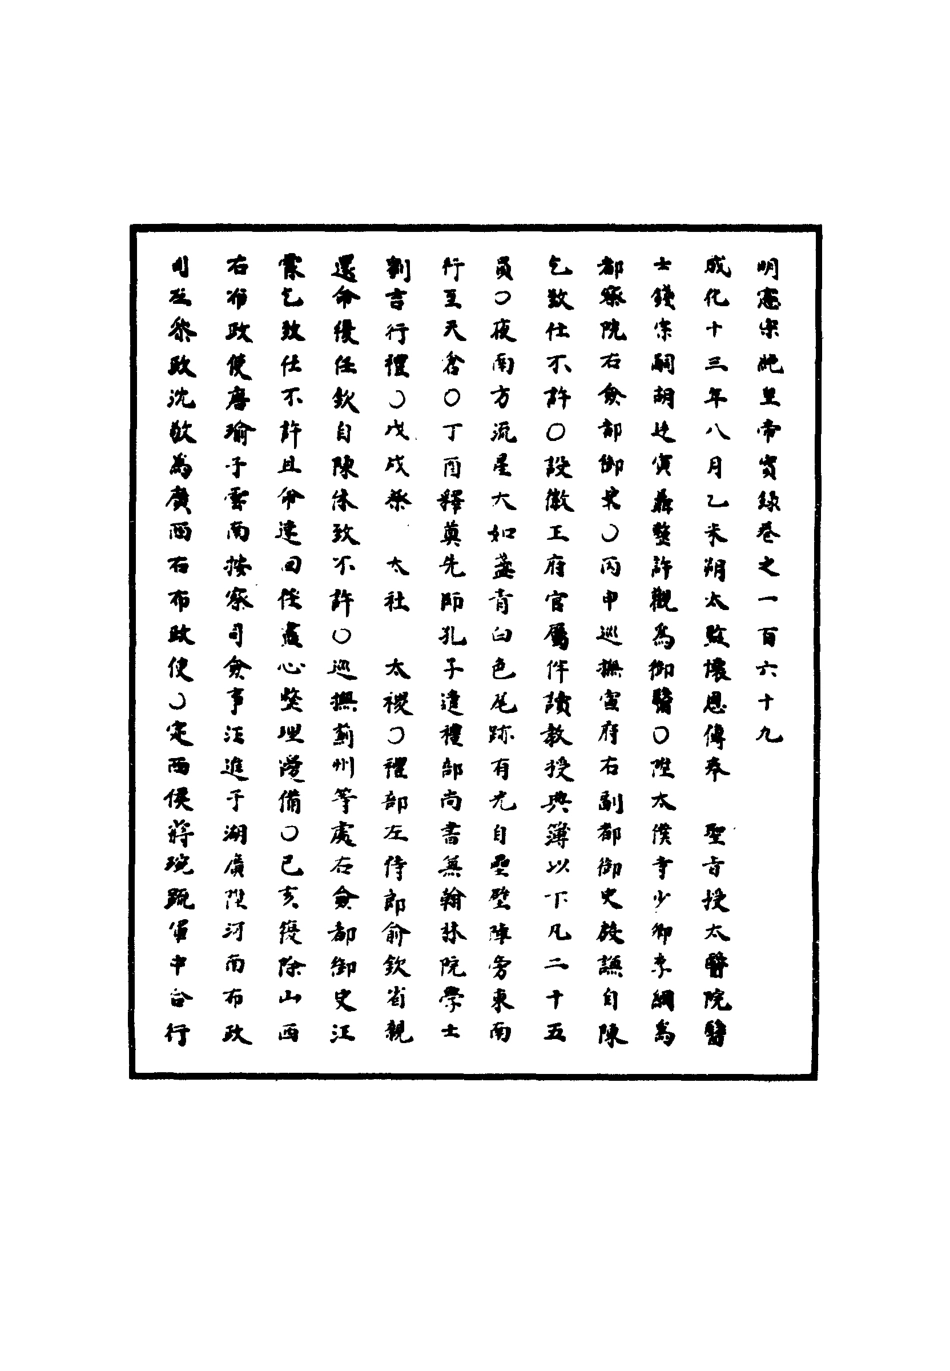 明憲宗純皇帝實録卷之一百六十九
成化十三年八月乙未朔太監懷恩傳奉　聖旨授太醫院醫
士錢宗嗣胡廷寅聶整許觀爲御醫○陞太僕寺少卿李綱爲
都察院右僉都御史○丙申巡撫宣府右副都御史殷謙自陳
乞致仕不許○設徽王府官屬伴讀教授典簿以下凡二十五
員○夜南方流星大如盞青白色尾跡有光自壘壁陣旁東南
行至天倉○丁酉釋奠先師孔子遣禮部尚書無翰林院學士
劉吉行禮○戊戌祭　太社　太稷○禮部左侍郎俞欽省親
還命復任欽自陳休致不許○巡撫薊州等處右僉都御史汪
霖乞致仕不許且命速回任盡心整理邊備○己亥復除山西
右布政使唐瑜于雲南按察司僉事汪進于湖廣陞河南布政
司左叅政沈敬為廣西右布政使○定西侯蔣琬䟽軍中合行